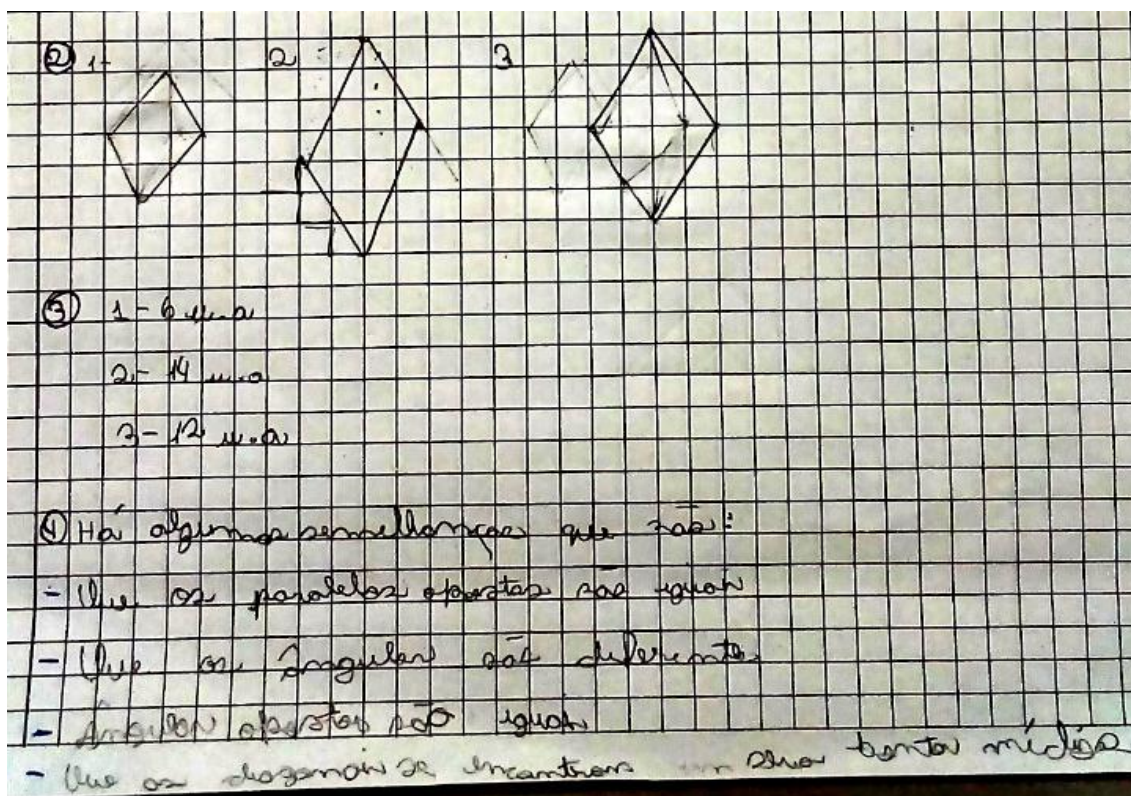 ② 1- 2 3
③ 1 - 6 u.a
2 - 14 u.a
3 - 12 u.a
④ Há algumas semelhanças que são:
- Que os paralelos opostos são iguais
- Que os ângulos são diferentes
- Ângulos opostos são iguais
- Que as diagonais se encontram em seus pontos médios